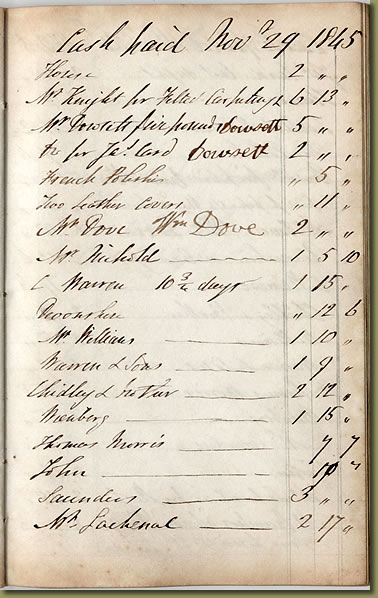 Cash paid Novr 29 1845
House 2 „ „
Mr Knight for Felted Carpetings 6 13 „
Mr Dowsett five pounds Dowsett 5 „ „
Do for Jas Card Dowsett 2 „ „
French Polisher „ 5 „
Two Leather Covers „ 11 „
Mr Dove Wm Dove 2 „ „
Mr Nickold 1 5 10
C Warren 10 3/4 days 1 15 „
Devonshire „ 12 6
Mr Williams 1 10 „
Warren & Sons 1 9 „
Chidley & 2 12 „
1 15 „
Thomas Morris 7 7
John 10
Saunders 3 „ „
Mr Lachenal 2 17 „